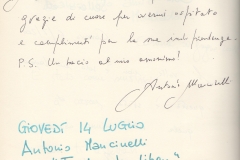 grazie di cuore per avermi ospitato
e complimenti per la sua indipendenza.
P.S. Un bacio al mio
Antonio Mancinelli
GIOVEDÌ 14 LUGLIO
Antonio Mancinelli